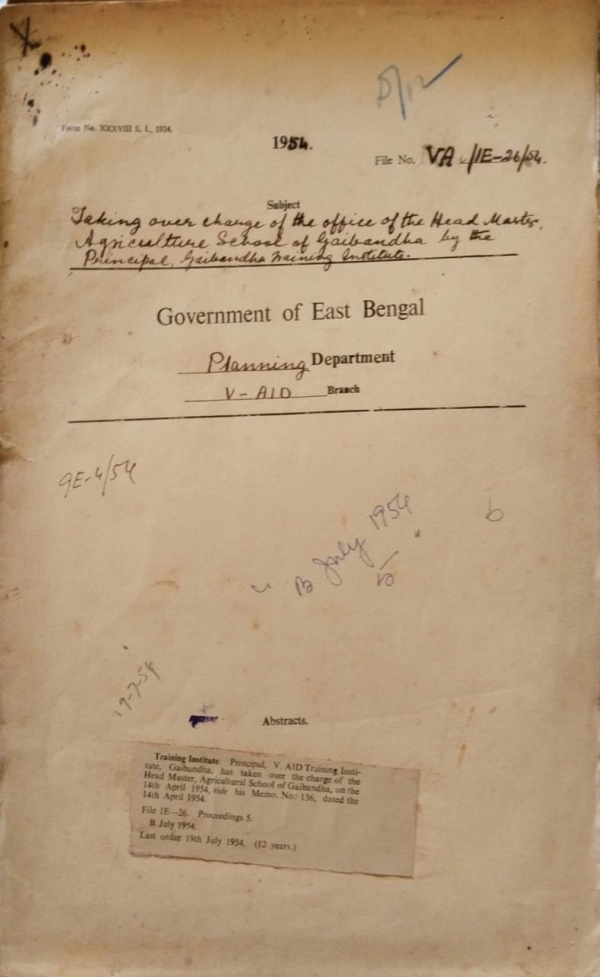 Form No. XXXVIII S. I., 1924.
1954.
File No. VA./1E-26/54.
Subject
Taking over charge of the office of the Head Master,
Agriculture School of Gaibandha by the
Principal, Gaibandha Training Institute.
Government of East Bengal
Planning Department
V-AID Branch
9E-4/54
B July 1954
b
19-7-54
Abstracts.
Training Institute. Principal, V. AID Training Insti-
tute, Gaibandha, has taken over the charge of the
Head Master, Agricultural School of Gaibandha, on the
14th April 1954, vide his Memo. No. 136, dated the
14th April 1954.
File 1E—26. Proceedings 5.
B July 1954.
Last order 19th July 1954. (12 years.)